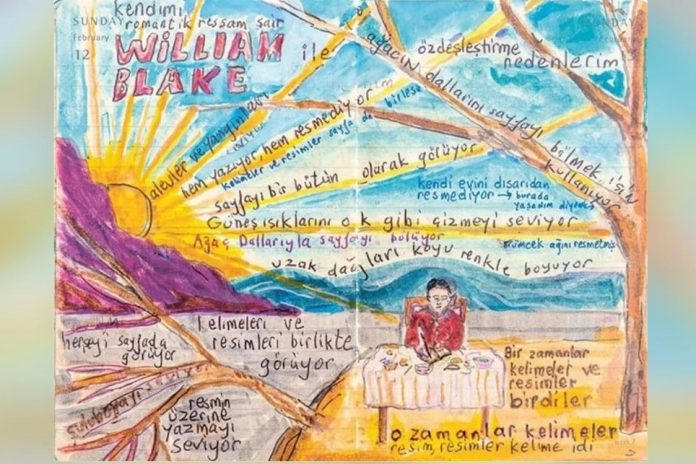 kendimi
romantik ressam şair
SUNDAY
February
12
WILLIAM
BLAKE
ile
özdeşleştirme
nedenlerim
SUNDAY
ağacın dallarını sayfayı bölmek için
kullanıyor
alevler ve yangınları
seviyor
hem yazıyor, hem resmediyor
kelimeler ve resimler sayfa da
sayfayı bir bütün olarak görüyor
kendi evini dışarıdan
resmediyor → burada
yaşadım diyerek
Güneş ışıklarını ok gibi çizmeyi seviyor
Ağaç Dallarıyla sayfayı bölüyor
örümcek ağını resmetmiş
uzak dağları koyu renkle boyuyor
herşeyi sayfada
görüyor
kelimeleri ve
resimleri birlikte
görüyor
suluboyayı seviyor
resmin
üzerine
yazmayı
seviyor
Bir zamanlar
kelimeler ve
resimler
birdiler
o zamanlar kelimeler
resim, resimler kelime idi